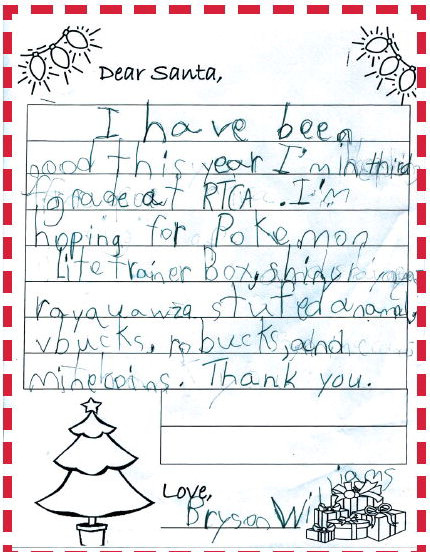 Dear Santa,
I have been
good this year I'm in third
grade at RTCA. I'm
hoping for Pokemon
Lite trainer Box, shiny
rayauawza stufed anamal,
vbucks, robucks, and
minecoins. Thank you.
Love,
Bryson Williams